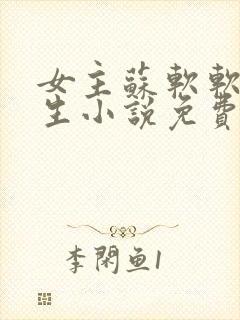 女主蘇軟軟
生小說免費
李閑鱼1